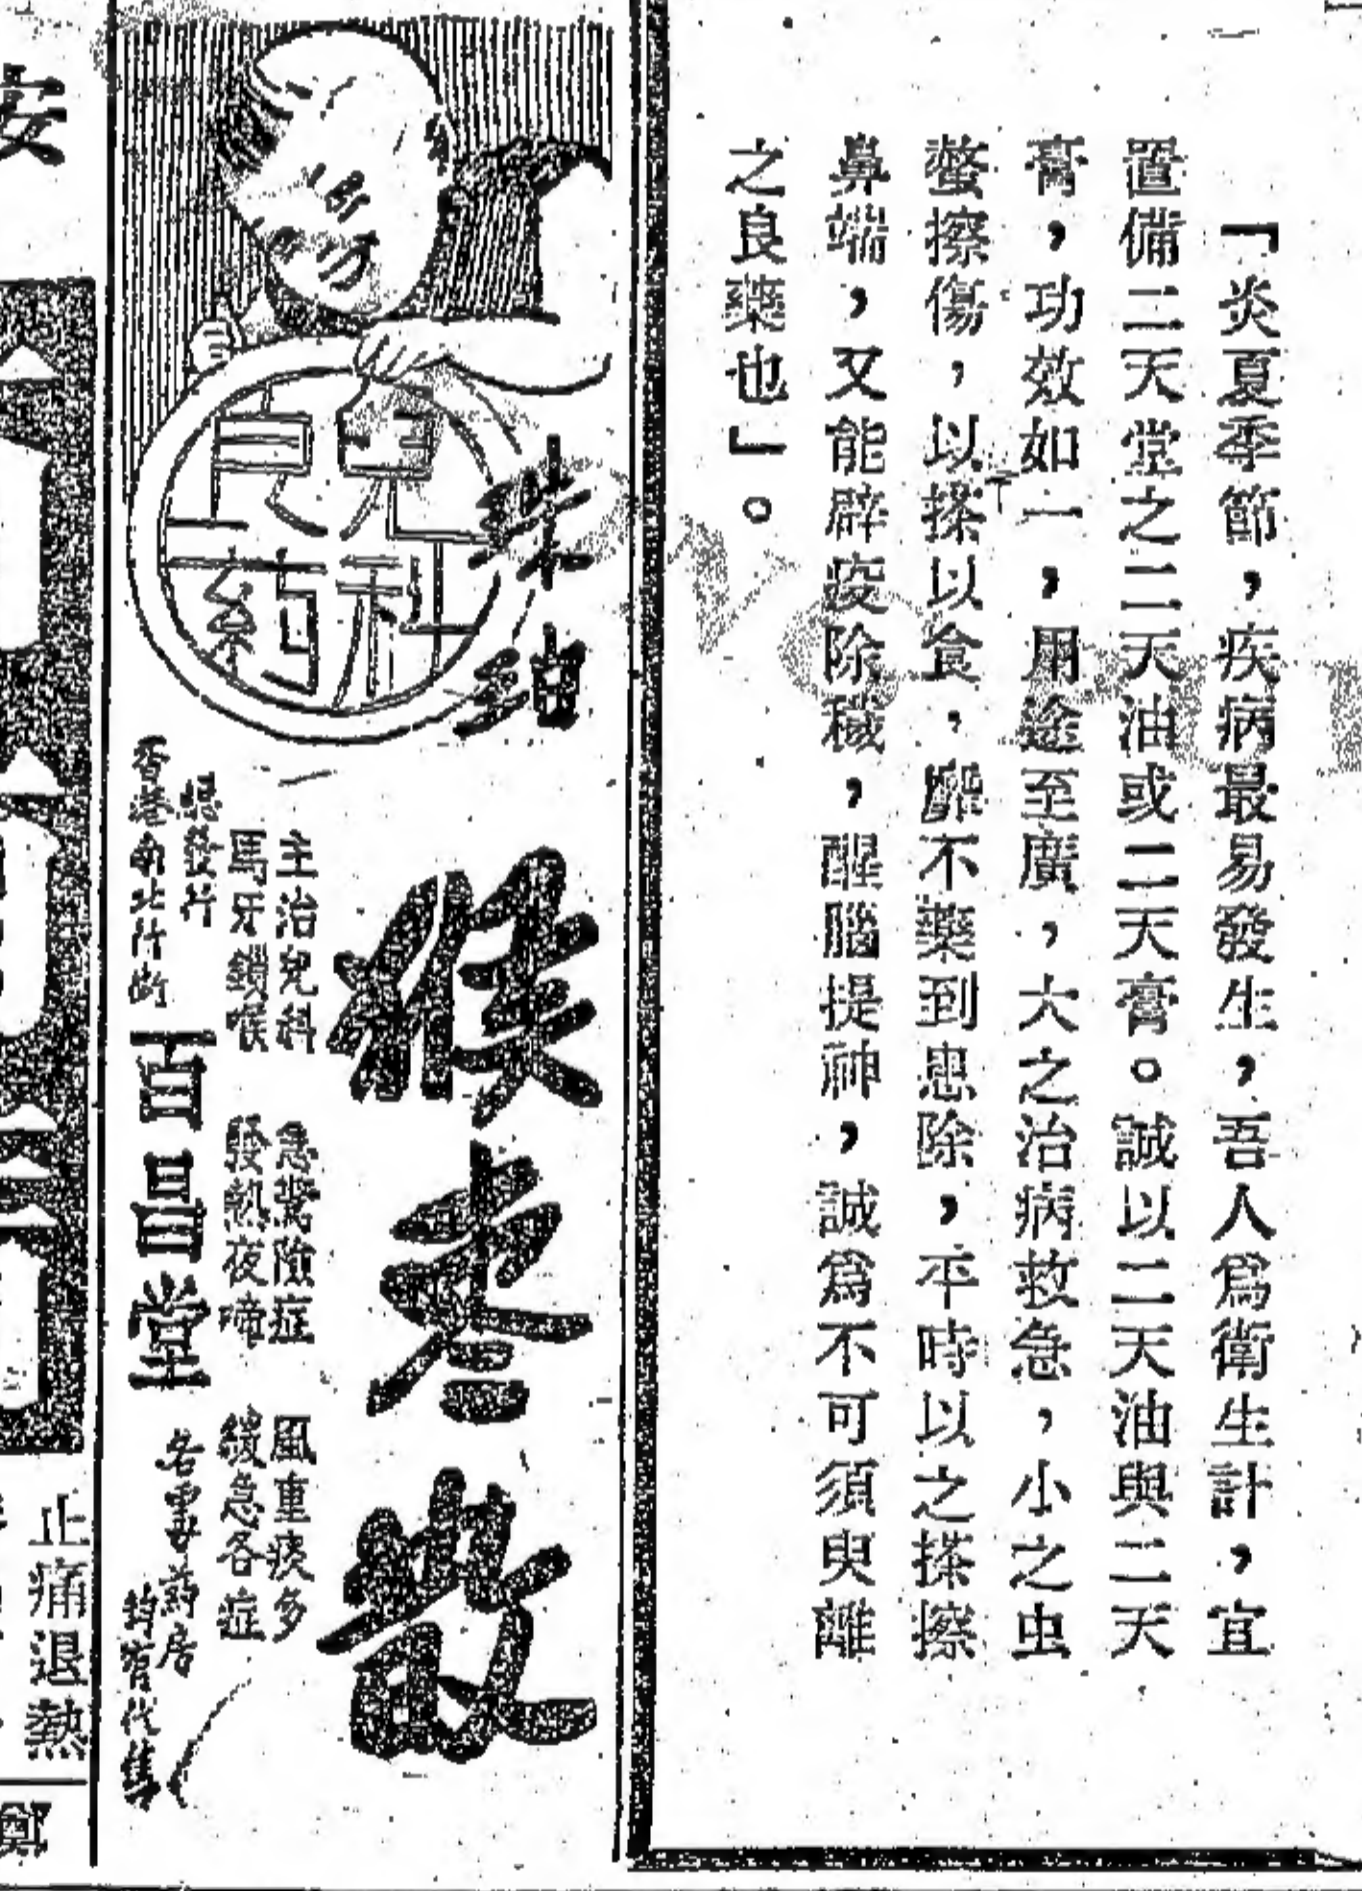 「炎夏季節，疾病最易發生，吾人爲衛生計，宜
置備二天堂之二天油或二天膏。誠以二天油與二天
膏，功效如一，用途至廣，大之治病救急，小之虫
螫擦傷，以搽以食，靡不藥到患除，平時以之搽擦
鼻端，又能辟疫除穢，醒腦提神，誠爲不可須臾離
之良藥也」。
兒科
良药
珠珀
猴枣散
主治兒科 急驚險症 風重痰多
馬牙鎖喉 發熱夜啼 緩急各症
總發行
香港南北行街
百昌堂
各電药房
均有代售
安
止痛退熱
鄭